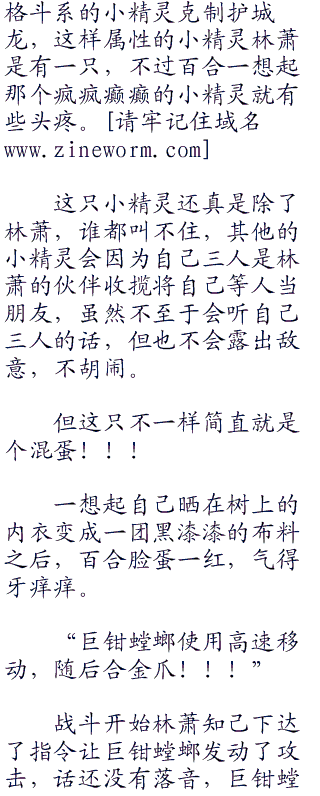 格斗系的小精灵克制护城
龙，这样属性的小精灵林萧
是有一只，不过百合一想起
那个疯疯癫癫的小精灵就有
些头疼。[请牢记住域名
www.zineworm.com]
这只小精灵还真是除了
林萧，谁都叫不住，其他的
小精灵会因为自己三人是林
萧的伙伴收揽将自己等人当
朋友，虽然不至于会听自己
三人的话，但也不会露出敌
意，不胡闹。
但这只不一样简直就是
个混蛋！！！
一想起自己晒在树上的
内衣变成一团黑漆漆的布料
之后，百合脸蛋一红，气得
牙痒痒。
“巨钳螳螂使用高速移
动，随后合金爪！！！”
战斗开始林萧知己下达
了指令让巨钳螳螂发动了攻
击，话还没有落音，巨钳螳